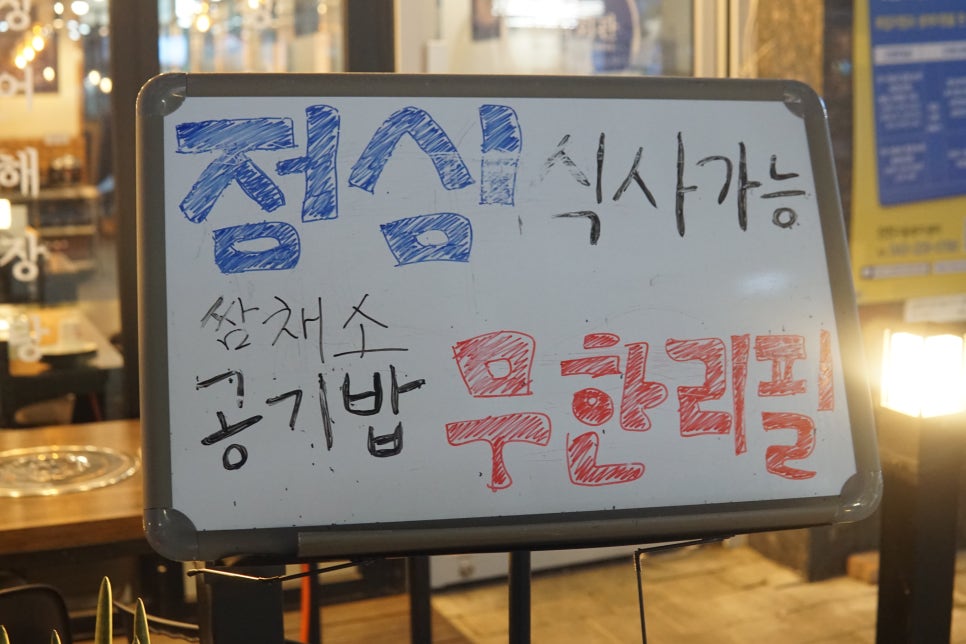 점심 식사가능
쌈채소
공기밥 무한리필
해
장